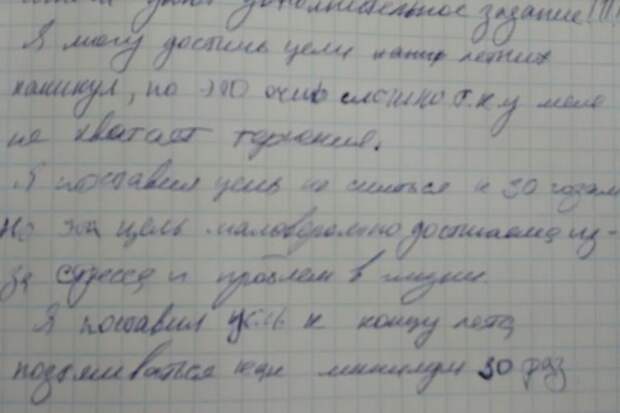 дополнительное задание!!!
Я могу достичь цели летних
каникул, но это очень сложно т.к у меня
не хватает терпения.
Я поставил цель не спиться к 30 годам
Но эта цель маловероятно достигаема из-
за стресса и проблем в жизни.
Я поставил цель к концу лета
подтягиваться как минимум 30 раз